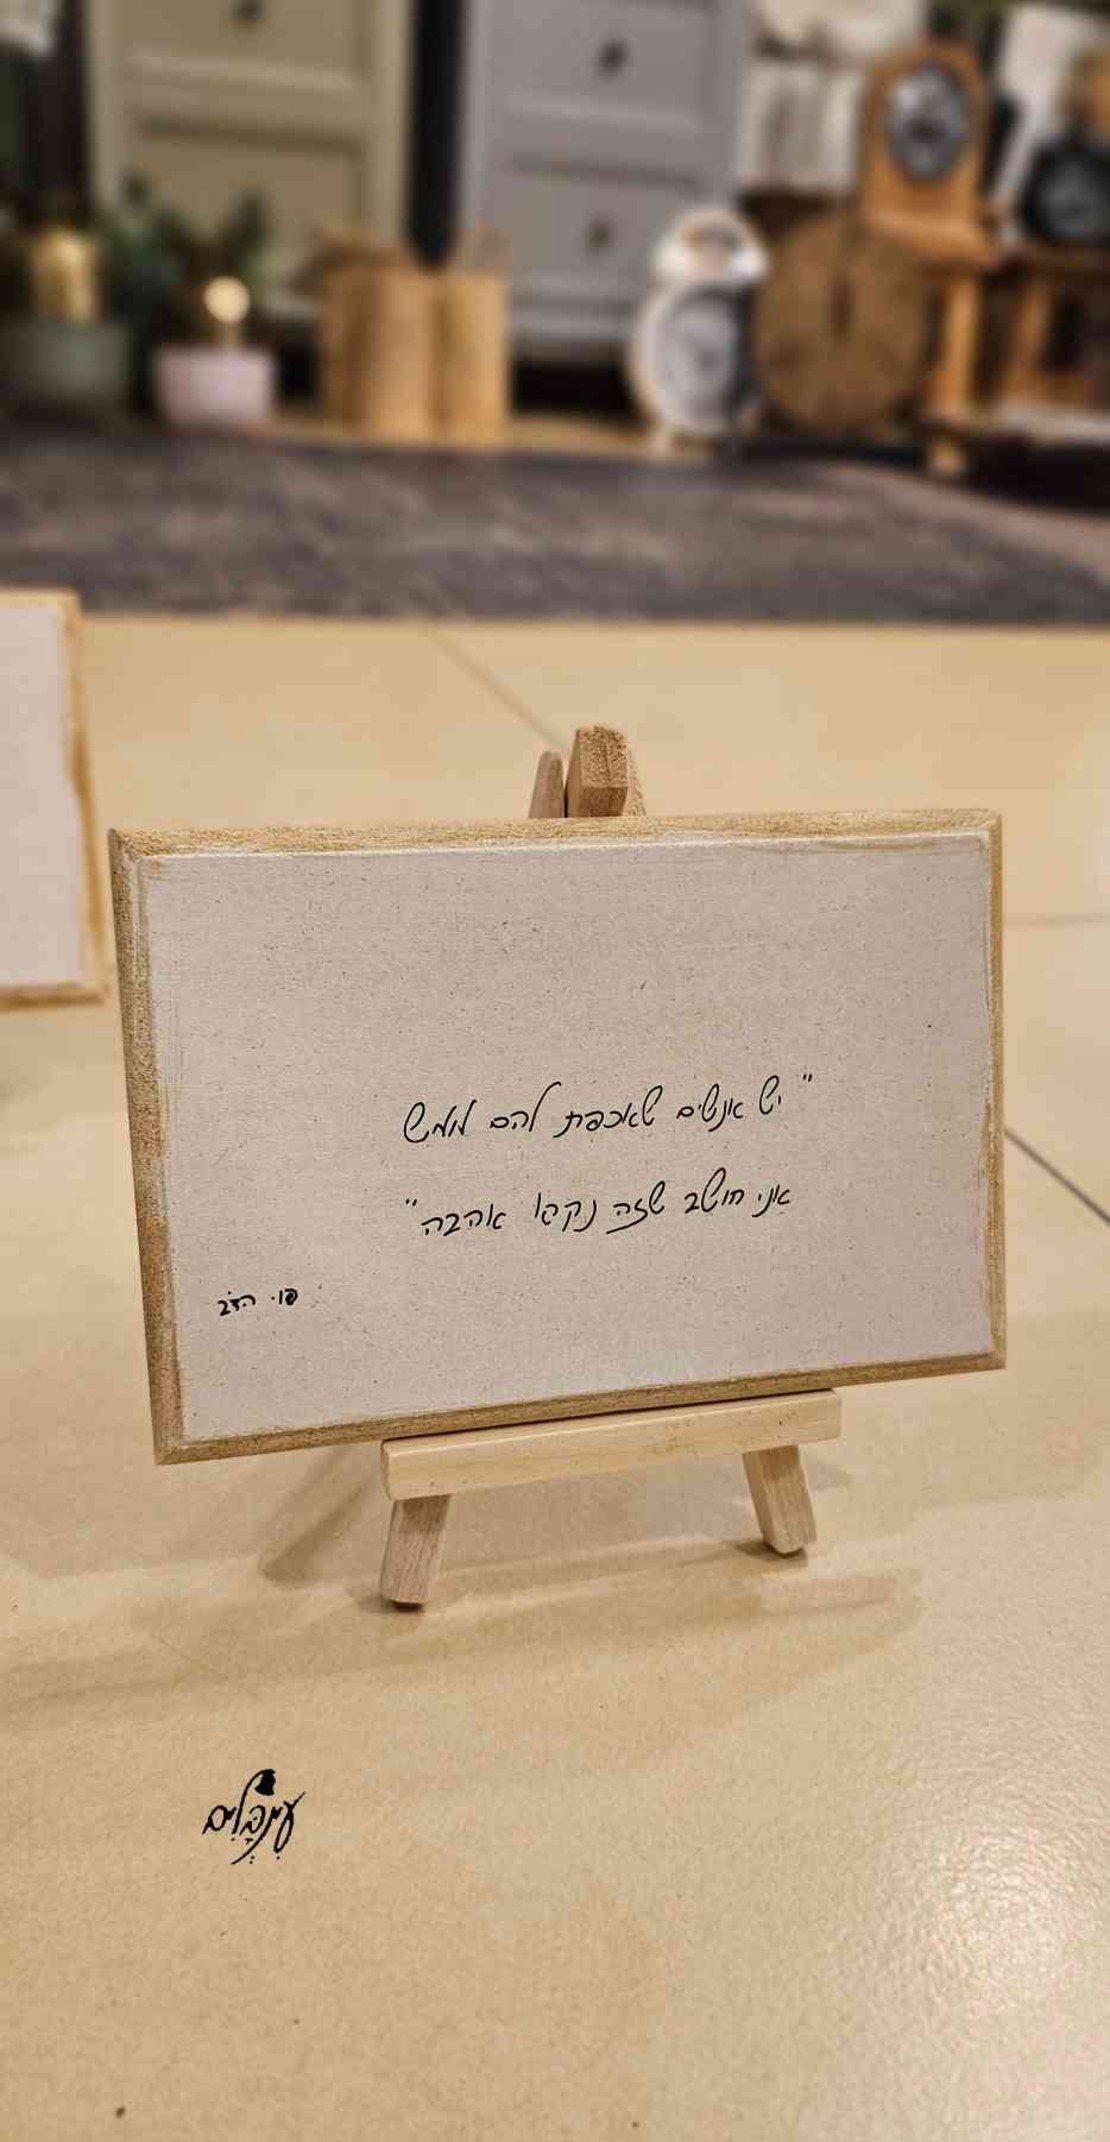 "יש אנשים שאכפת להם ממש
אני חושב שזה נקרא אהבה"
פו הדב